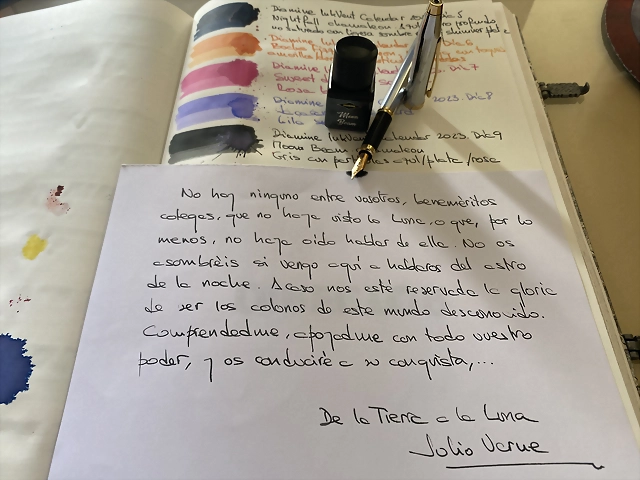 Diamine InkVent Calendar
Nightfall chameleon azul oscuro profundo
Diamine
Diamine
Sweet
Rosa
Diamine 2023. Dic 8
Lila
Diamine InkVent Calendar 2023. Dic 9
Moon Beam chameleon
Gris con azul/plata/rosa
Moon
Beam
No hay ninguno entre vosotros, beneméritos
colegas, que no haya visto la Luna, o que, por lo
menos, no haya oido hablar de ella. No os
asombréis si vengo aquí a hablaros del astro
de la noche. Acaso nos esté reservada la gloria
de ser los colonos de este mundo desconocido.
Comprendedme, apoyadme con todo vuestro
poder, y os conduciré a su conquista,...
De la Tierra a la Luna
Julio Verne